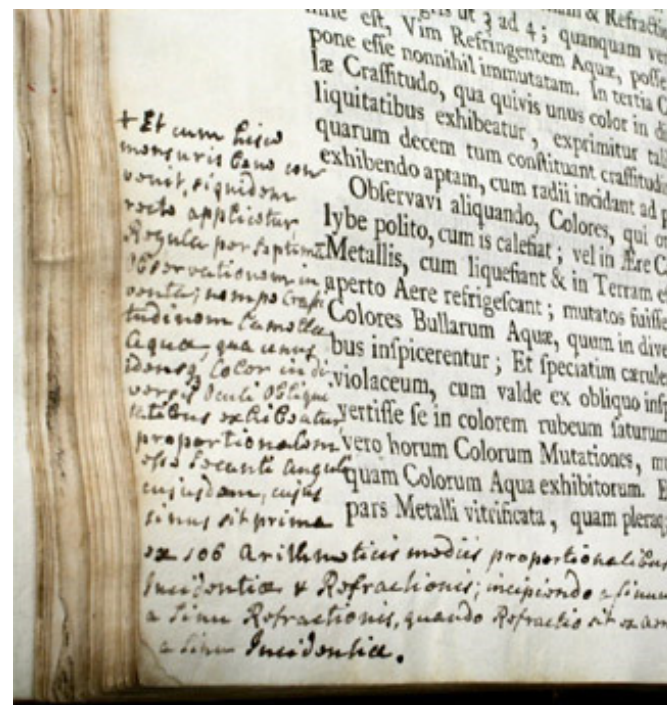 ut 3 ad 4; quanquam
est, Vim Refringentem Aquæ, posse
pone esse nonnihil immutatam. In tertia
læ Crassitudo, qua quivis unus color in
liquitatibus exhibeatur, exprimitur
quarum decem tum constituant crassitud
exhibendo aptam, cum radii incidant ad
Observavi aliquando, Colores, qui
lybe polito, cum is calefiat; vel in Ære
Metallis, cum liquefiant & in Terram
aperto Aere refrigescant; mutatos fuisse
Colores Bullarum Aquæ, quum in dive
bus inspicerentur; Et speciatim cærule
violaceum, cum valde ex obliquo
vertisse se in colorem rubeum saturum
vero horum Colorum Mutationes,
quam Colorum Aqua exhibitorum.
pars Metalli vitrificata, quam pleraq
+ Et cum hisce
mensuris bene con
venit, siquidem
recte applicetur
Regula per septimā
Observationem in
venta; nempe crassi
tudinem Lamellæ
Aquæ, qua unus
idemq; Color in di
versis Oculi Obliqui
tatibus exhibeatur,
proportionalem
esse secanti anguli
cujusdam, cujus
sinus sit prima
ex 106 Arithmeticis mediis proportionalibus
Incidentiæ & Refractionis; incipiendo a sinu
a Sinu Refractionis, quando Refractio sit ex
a Sinu Incidentiæ.